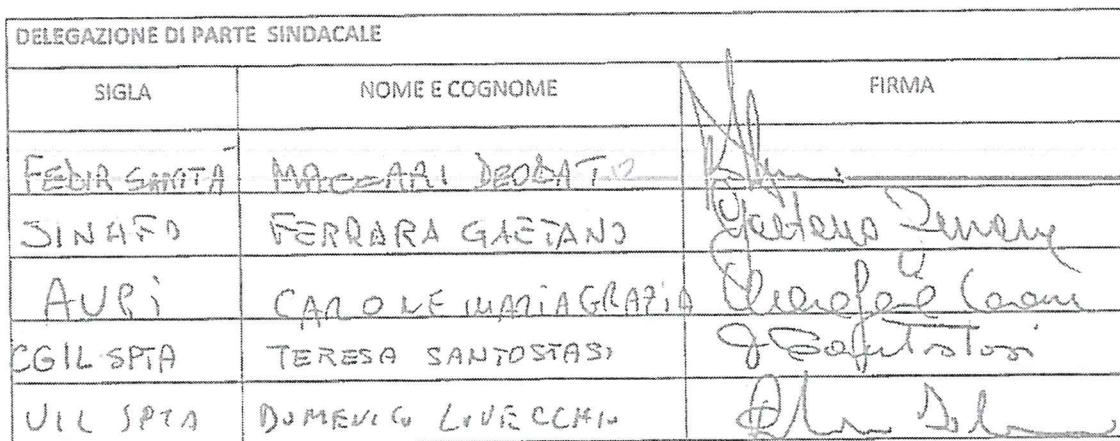 DELEGAZIONE DI PARTE SINDACALE
SIGLA NOME E COGNOME FIRMA
FEDIR SANITÀ DEODAT
SINAFO FERRARA GAETANO Gaetano Ferrara
AUPI CARONE MARIAGRAZIA Carone
CGIL SPTA TERESA SANTOSTASI Santostasi
UIL SPTA DOMENICO LOVECCHIO